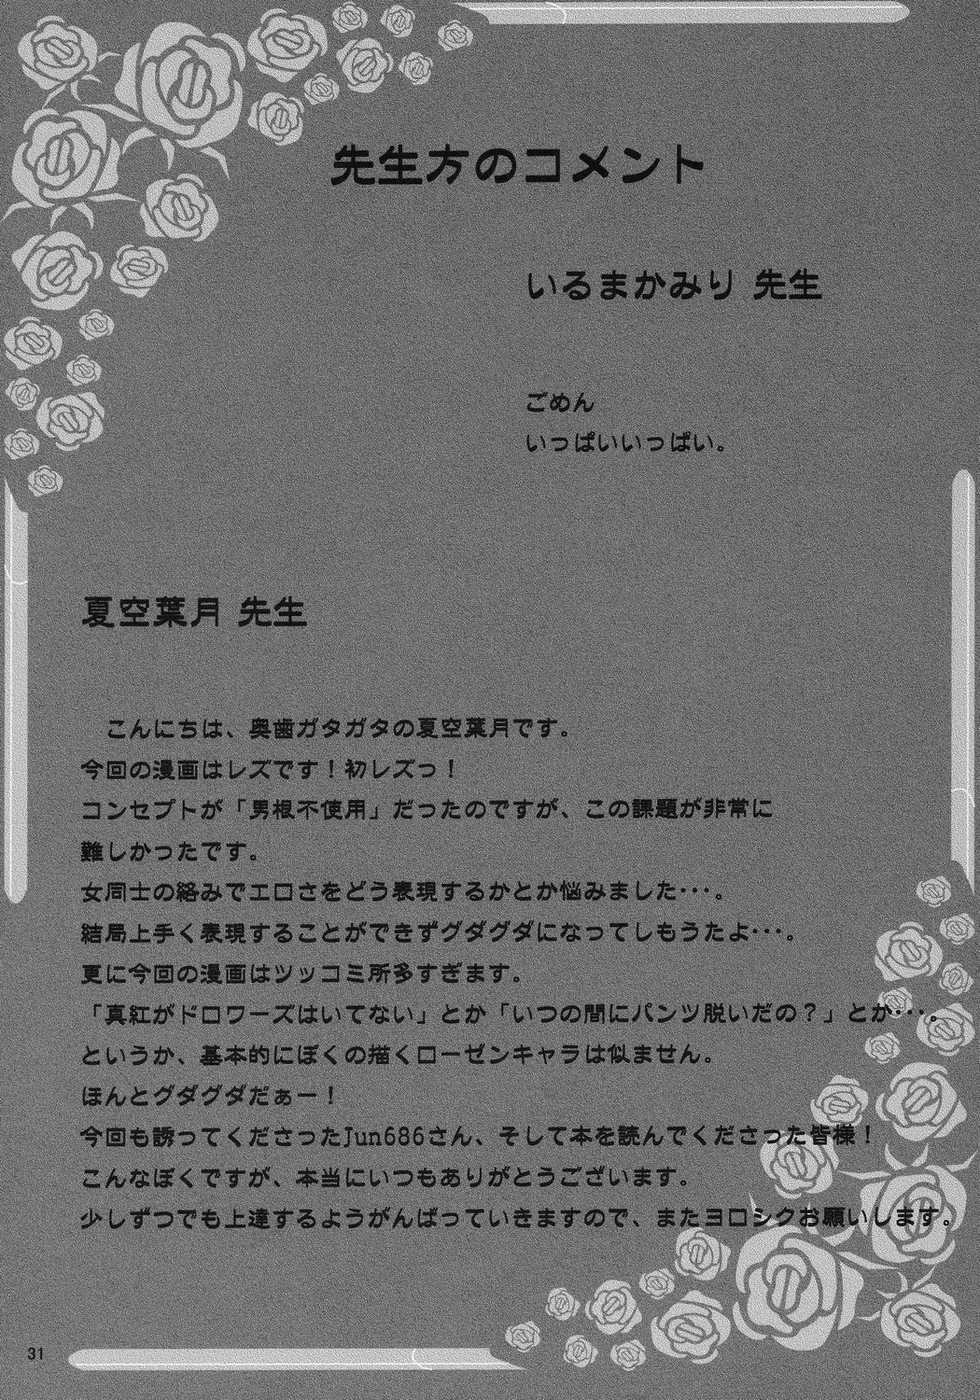 先生方のコメント
いるまかみり 先生
ごめん
いっぱいいっぱい。
夏空葉月 先生
こんにちは、奥歯ガタガタの夏空葉月です。
今回の漫画はレズです！初レズっ！
コンセプトが「男根不使用」だったのですが、この課題が非常に
難しかったです。
女同士の絡みでエロさをどう表現するかとか悩みました･･･。
結局上手く表現することができずグダグダになってしもうたよ･･･。
更に今回の漫画はツッコミ所多すぎます。
「真紅がドロワーズはいてない」とか「いつの間にパンツ脱いだの？」とか･･･。
というか、基本的にぼくの描くローゼンキャラは似ません。
ほんとグダグダだぁー！
今回も誘ってくださったJun686さん、そして本を読んでくださった皆様！
こんなぼくですが、本当にいつもありがとうございます。
少しずつでも上達するようがんばっていきますので、またヨロシクお願いします。
31